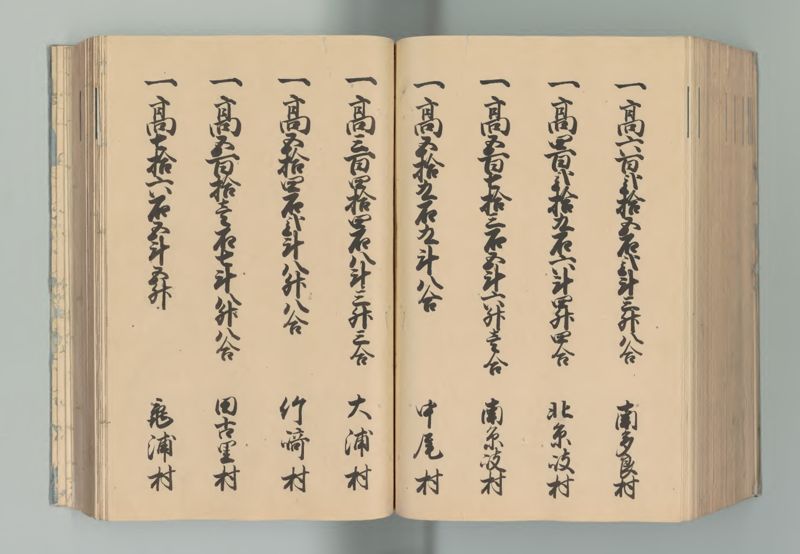 一高六百弐拾五石弐斗三升八合 南多良村
一高四百弐拾五石六斗四升四合 北糸岐村
一高五百七拾三石五斗六升壱合 南糸岐村
一高五拾九石九斗八合 中尾村
一高三百四拾四石八斗三升三合 大浦村
一高五拾四石弐斗八升八合 竹崎村
一高五百拾壱石七斗八升八合 田古里村
一高七拾六石五斗五升 亀浦村